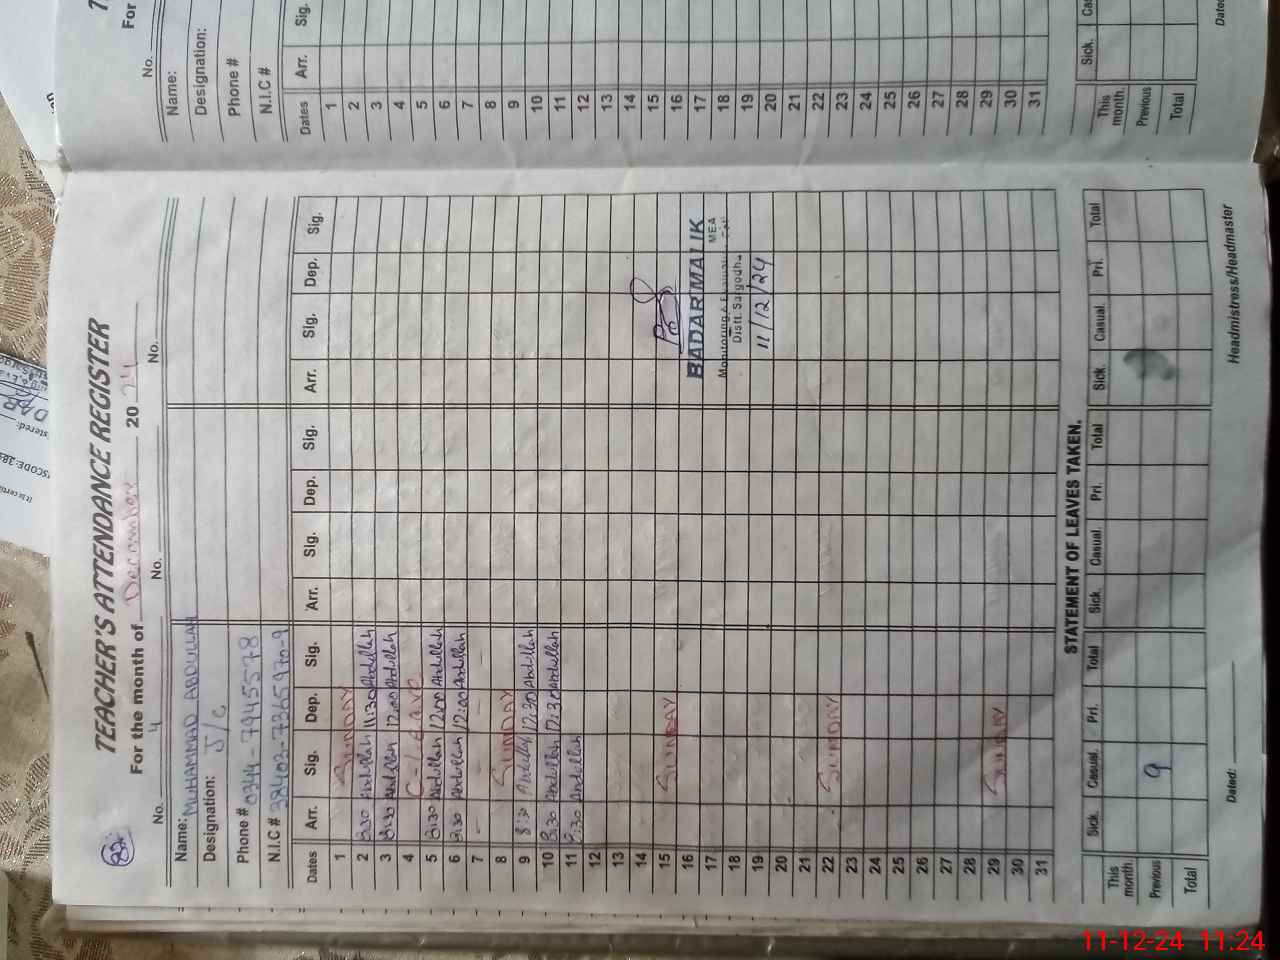 TEACHER'S ATTENDANCE REGISTER
For the month of December 2024
No. 4 No. No.
Name: MUHAMMAD ABDULLAH
Designation: J/C
Phone # 0344-7945578
N.I.C #
Dates Arr. Sig. Dep. Sig. Arr. Sig. Dep. Sig. Arr. Sig. Dep. Sig.
1 SUNDAY
2 8:30 Abdullah 11:30 Abdullah
3 8:30 Abdullah 12:00 Abdullah
4 C-Leave
5 8:30 Abdullah 12:00 Abdullah
6 8:30 Abdullah 12:00 Abdullah
7 - - - -
8 SUNDAY
9 8:30 Abdullah 12:30 Abdullah
10 8:30 Abdullah 12:30 Abdullah
11 8:30 Abdullah
12
13
14
15 SUNDAY
16
17 BADAR MALIK
18 Monitoring & MEA
19 Distt. Sargodha
20 11/12/24
21
22 SUNDAY
23
24
25
26
27
28
29 SUNDAY
30
31
STATEMENT OF LEAVES TAKEN.
Sick. Casual. Pri. Total Sick. Casual. Pri. Total Sick. Casual. Pri. Total
This month.
Previous 9
Total
Dated: Headmistress/Headmaster
For
No.
Name:
Designation:
Phone #
N.I.C #
Dates Arr. Sig.
1
2
3
4
5
6
7
8
9
10
11
12
13
14
15
16
17
18
19
20
21
22
23
24
25
26
27
28
29
30
31
Sick.
This month.
Previous
Total
Dated:
11-12-24 11:24